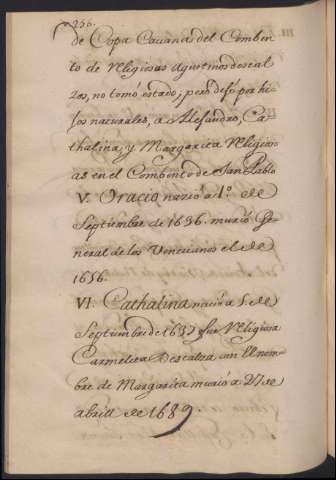 256.
de Copa Cauana del Comben
to de Religiosos Agustinos descal
zos, no tomó estado; pero dejó por hi
jos naturales, a Alejandro, Ca
thalina, y Margarita Religio
as en el Combento de San Pablo
V. Oracio nació a 1.º de
Septiembre de 1636. murió Ge
neral de los Venecianos el de
1656.
VI. Cathalina nació a 5 de
Septiembre de 1637 fue Religiosa
Carmelita Descalza con El nom
bre de Margarita murió a 27 de
abrill de 1689